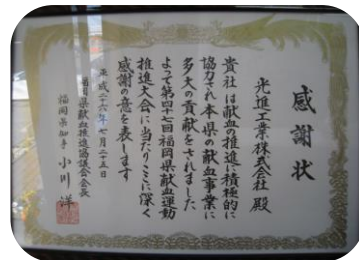 感謝状
光進工業株式会社 殿
貴社は献血の推進に積極的に
協力され本県の献血事業に
多大の貢献をされました
よって第四十七回福岡県献血運動
推進大会に当たりここに深く
感謝の意を表します
平成二十六年七月二十五日
福岡県献血推進協議会会長
福岡県知事 小川洋